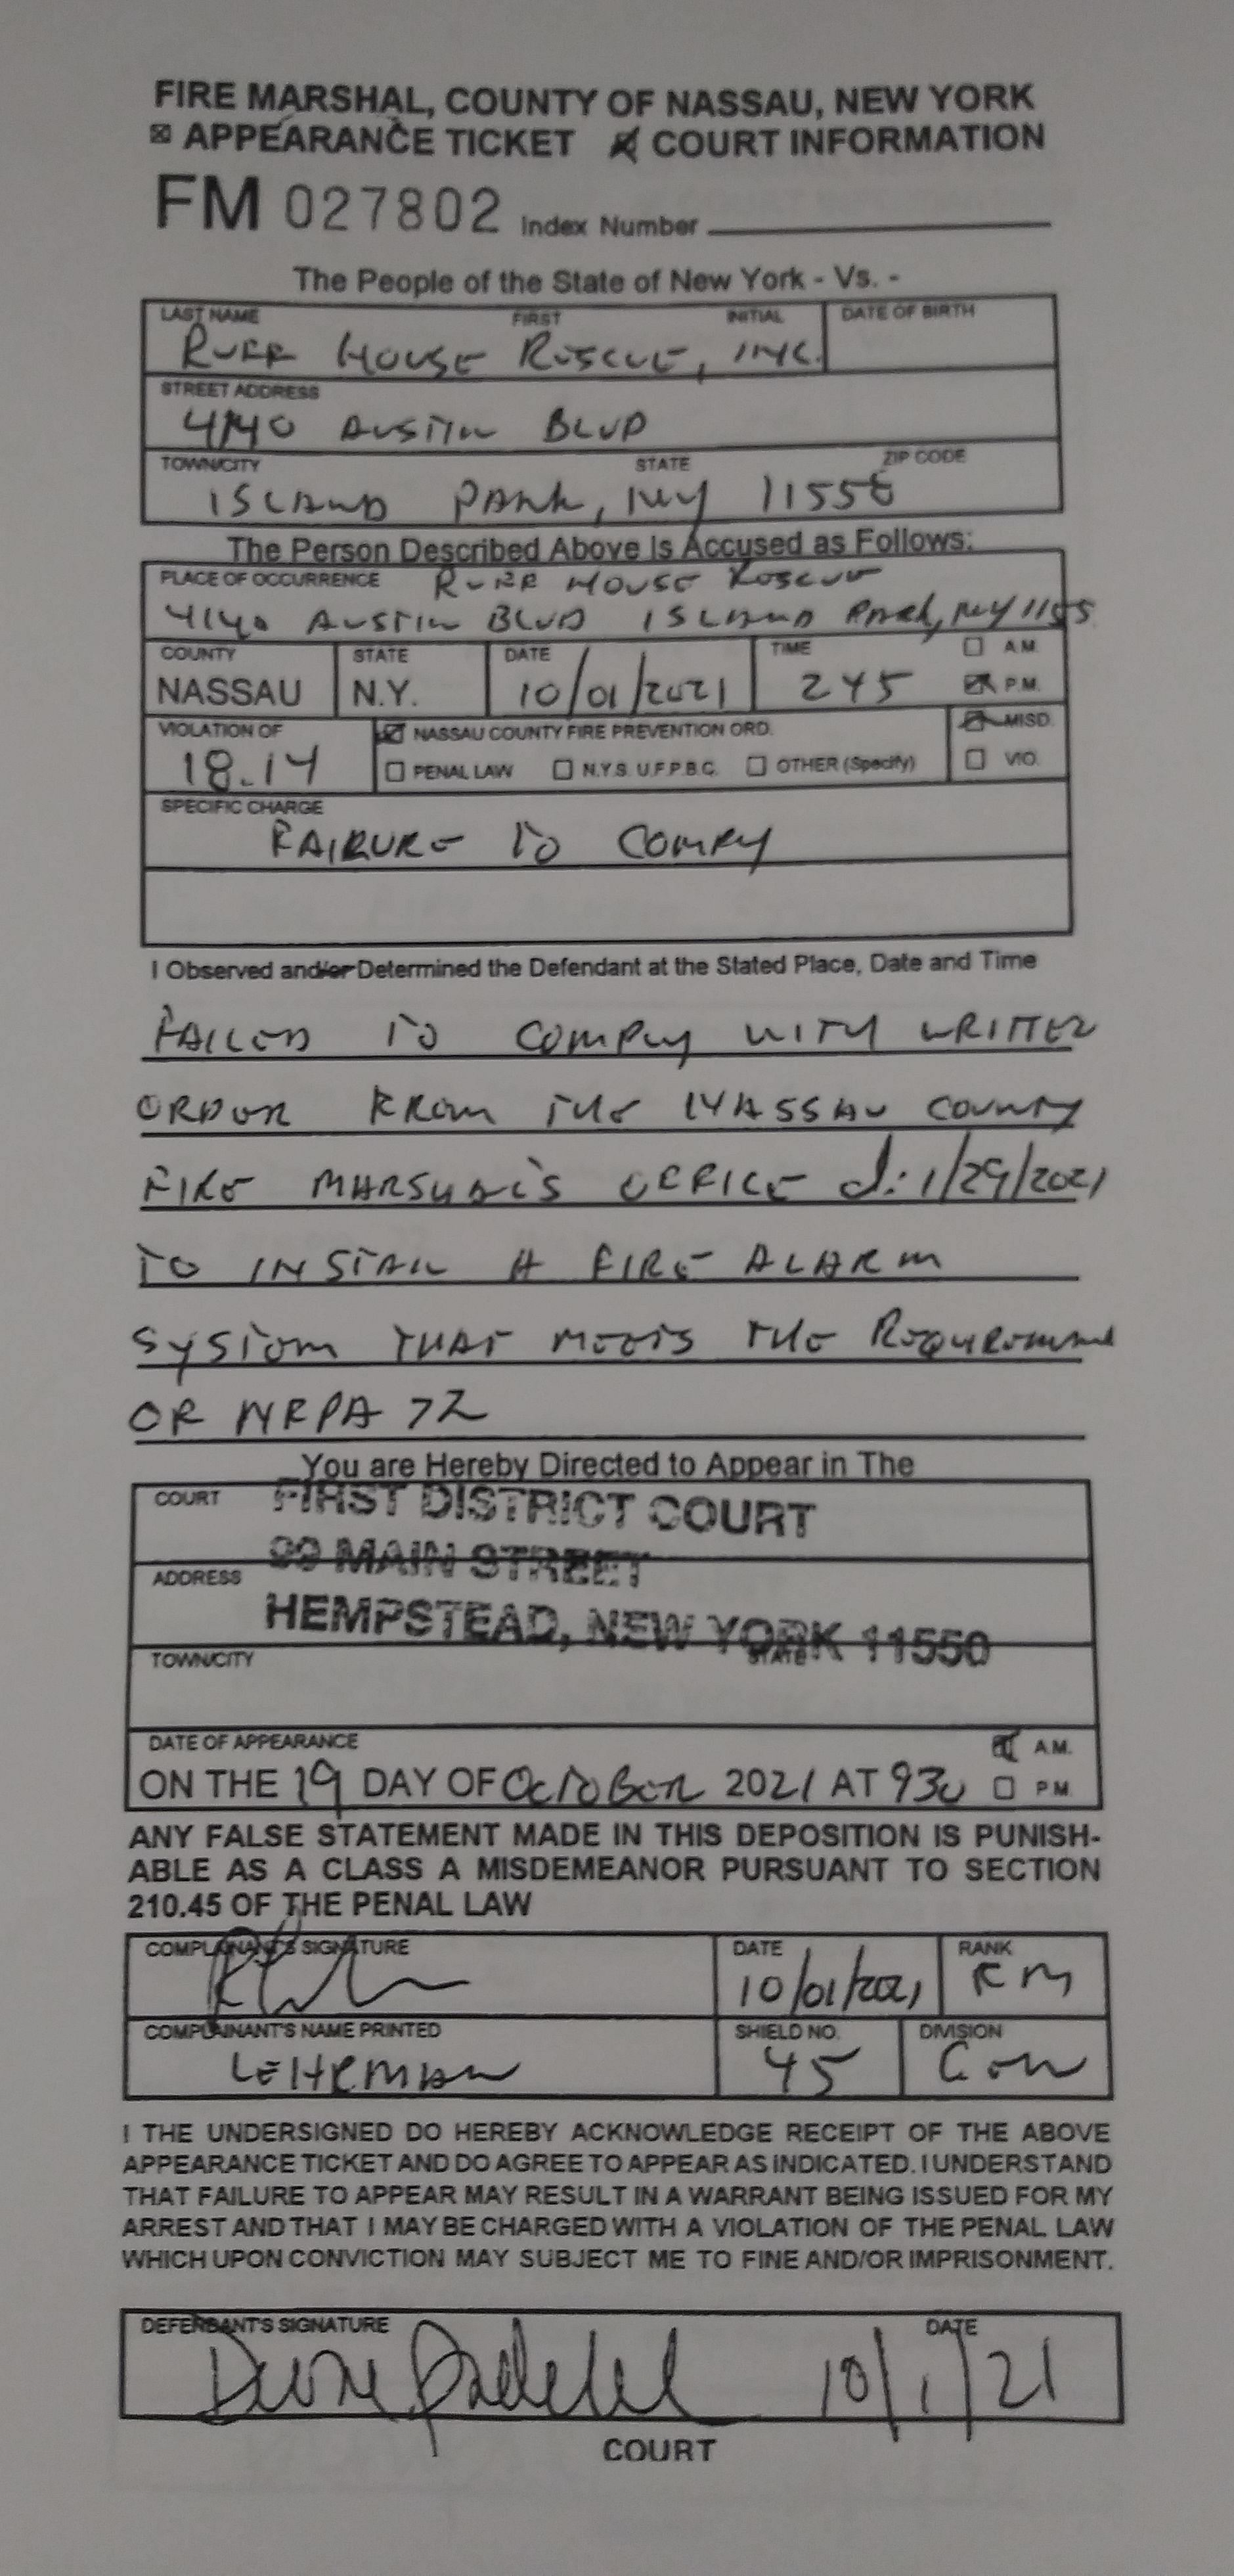 FIRE MARSHAL, COUNTY OF NASSAU, NEW YORK
☒ APPEARANCE TICKET ☒ COURT INFORMATION
FM 027802 Index Number
The People of the State of New York - Vs. -
LAST NAME FIRST INITIAL DATE OF BIRTH
RUFF HOUSE RESCUE, INC.
STREET ADDRESS
4140 AUSTIN BLVD
TOWN/CITY STATE ZIP CODE
ISLAND PARK, NY 11558
The Person Described Above Is Accused as Follows:
PLACE OF OCCURRENCE RUFF HOUSE RESCUE
4140 AUSTIN BLVD ISLAND PARK, NY 1155
COUNTY STATE DATE TIME ☐ A.M.
NASSAU N.Y. 10/01/2021 245 ☒ P.M.
VIOLATION OF ☒ NASSAU COUNTY FIRE PREVENTION ORD. ☒ MISD.
18.14 ☐ PENAL LAW ☐ N.Y.S. U.F.P.B.C. ☐ OTHER (Specify) ☐ VIO.
SPECIFIC CHARGE
FAILURE TO COMPLY
I Observed and/or Determined the Defendant at the Stated Place, Date and Time
FAILED TO COMPLY WITH WRITTEN
ORDER FROM THE NASSAU COUNTY
FIRE MARSHAL'S OFFICE d: 1/29/2021
TO INSTALL A FIRE ALARM
SYSTEM THAT MEETS THE REQUIREMENT
OF NFPA 72
You are Hereby Directed to Appear in The
COURT FIRST DISTRICT COURT
99 MAIN STREET
ADDRESS
HEMPSTEAD, NEW YORK 11550
TOWN/CITY STATE
DATE OF APPEARANCE ☒ A.M.
ON THE 19 DAY OF OCTOBER 2021 AT 930 ☐ P.M.
ANY FALSE STATEMENT MADE IN THIS DEPOSITION IS PUNISH-
ABLE AS A CLASS A MISDEMEANOR PURSUANT TO SECTION
210.45 OF THE PENAL LAW
COMPLAINANT'S SIGNATURE DATE RANK
10/01/2021 FM
COMPLAINANT'S NAME PRINTED SHIELD NO. DIVISION
45
I THE UNDERSIGNED DO HEREBY ACKNOWLEDGE RECEIPT OF THE ABOVE
APPEARANCE TICKET AND DO AGREE TO APPEAR AS INDICATED. I UNDERSTAND
THAT FAILURE TO APPEAR MAY RESULT IN A WARRANT BEING ISSUED FOR MY
ARREST AND THAT I MAY BE CHARGED WITH A VIOLATION OF THE PENAL LAW
WHICH UPON CONVICTION MAY SUBJECT ME TO FINE AND/OR IMPRISONMENT.
DEFENDANT'S SIGNATURE DATE
10/1/21
COURT